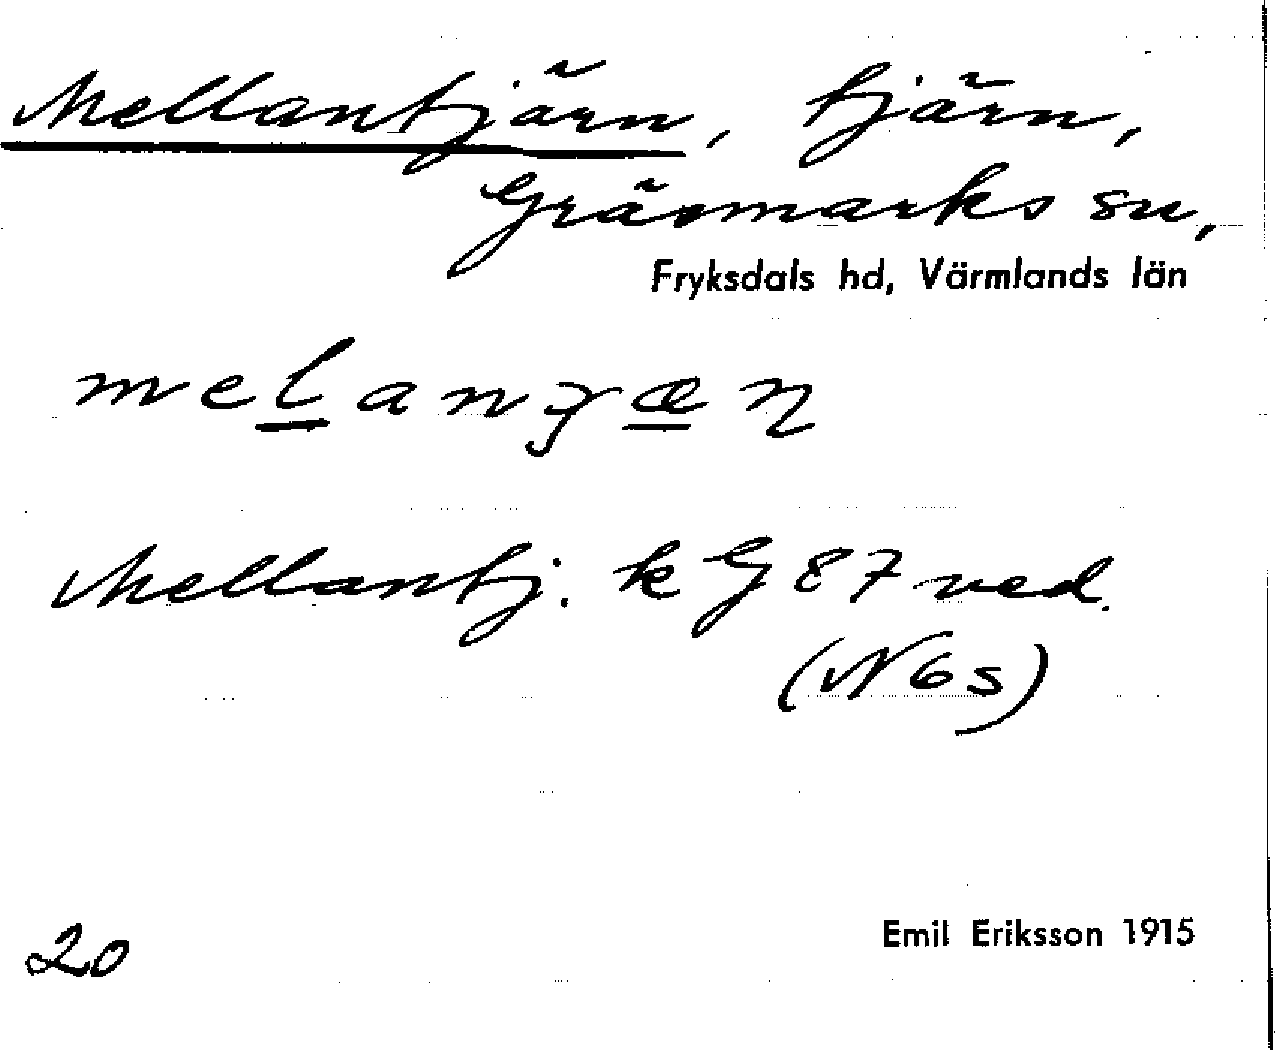 Mellantjärn, tjärn,
Gräsmarks sn,
Fryksdals hd, Värmlands län
melanɟæɳ
Mellantj. k G 87 ved.
(N 6 s)
Emil Eriksson 1915
20